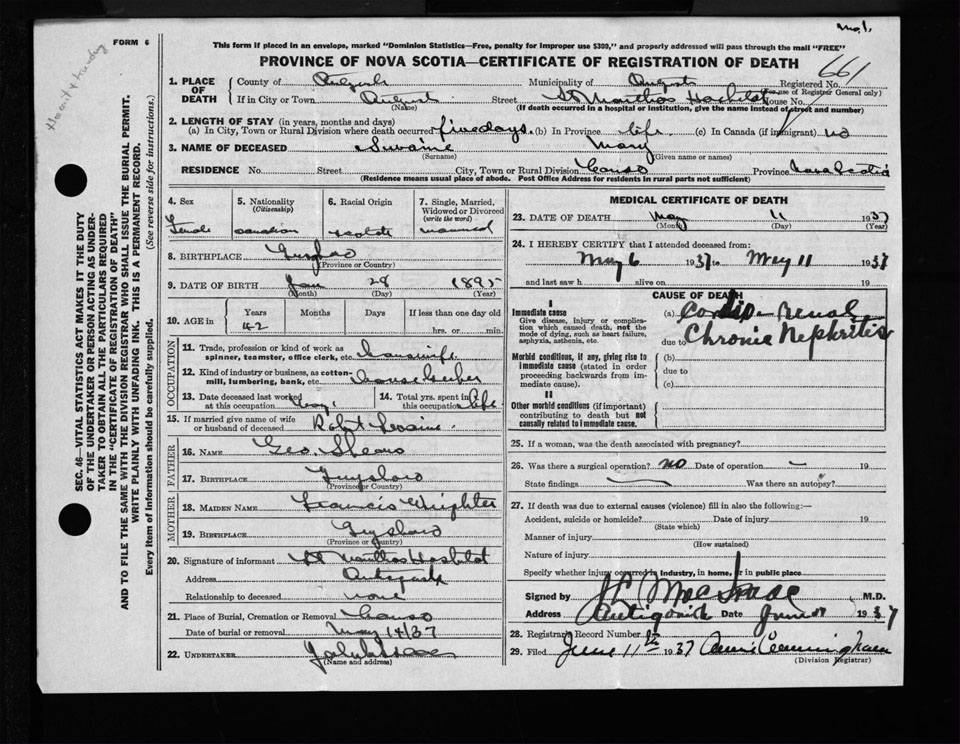 No.1.
FORM 6
This form if placed in an envelope, marked "Dominion Statistics—Free, penalty for improper use $300," and properly addressed will pass through the mail "FREE"
PROVINCE OF NOVA SCOTIA—CERTIFICATE OF REGISTRATION OF DEATH
661
SEC. 46—VITAL STATISTICS ACT MAKES IT THE DUTY
OF THE UNDERTAKER OR PERSON ACTING AS UNDER-
TAKER TO OBTAIN ALL THE PARTICULARS REQUIRED
IN THE "CERTIFICATE OF REGISTRATION OF DEATH"
AND TO FILE THE SAME WITH THE DIVISION REGISTRAR WHO SHALL ISSUE THE BURIAL PERMIT.
WRITE PLAINLY WITH UNFADING INK. THIS IS A PERMANENT RECORD.
Every item of information should be carefully supplied. (See reverse side for instructions.)
1. PLACE OF DEATH County of Municipality of Registered No.
(For use of Registrar General only)
If in City or Town Street St Marthas House No.
(Name) (If death occurred in a hospital or institution, give the name instead of street and number)
2. LENGTH OF STAY (in years, months and days)
(a) In City, Town or Rural Division where death occurred five days. (b) In Province life (c) In Canada (if immigrant) no
3. NAME OF DECEASED Mary
(Surname) (Given name or names)
RESIDENCE No. Street City, Town or Rural Division Canso Province Nova Scotia
(Residence means usual place of abode. Post Office Address for residents in rural parts not sufficient)
4. Sex Female
5. Nationality (Citizenship) Canadian
6. Racial Origin
7. Single, Married, Widowed or Divorced (write the word) married
8. BIRTHPLACE
(Province or Country)
9. DATE OF BIRTH Jan 28 1895
(Month) (Day) (Year)
10. AGE in Years Months Days If less than one day old
42 hrs. or min.
OCCUPATION
11. Trade, profession or kind of work as spinner, teamster, office clerk, etc. housewife
12. Kind of industry or business, as cotton-mill, lumbering, bank, etc. housekeeper
13. Date deceased last worked at this occupation May,
14. Total yrs. spent in this occupation life
15. If married give name of wife or husband of deceased Robert
FATHER
16. NAME Geo.
17. BIRTHPLACE Guysboro
(Province or Country)
MOTHER
18. MAIDEN NAME Francis
19. BIRTHPLACE Guysboro
(Province or Country)
20. Signature of informant St Marthas Hospital
Address
Relationship to deceased none
21. Place of Burial, Cremation or Removal Canso
Date of burial or removal May 14/37
22. UNDERTAKER
(Name and address)
MEDICAL CERTIFICATE OF DEATH
23. DATE OF DEATH May 11 1937
(Month) (Day) (Year)
24. I HEREBY CERTIFY that I attended deceased from:
May 6 1937 to May 11 1937
and last saw h alive on 19
CAUSE OF DEATH
I
Immediate cause
Give disease, injury or complication which caused death, not the mode of dying, such as heart failure, asphyxia, asthenia, etc.
(a) Cardio-Renal
due to Chronic Nephritis
Morbid conditions, if any, giving rise to immediate cause (stated in order proceeding backwards from immediate cause).
(b)
due to
(c)
II
Other morbid conditions (if important) contributing to death but not causally related to immediate cause.
25. If a woman, was the death associated with pregnancy?
26. Was there a surgical operation? no Date of operation — 19
State findings Was there an autopsy?
27. If death was due to external causes (violence) fill in also the following:—
Accident, suicide or homicide? Date of injury 19
(State which)
Manner of injury
(How sustained)
Nature of injury
Specify whether injury occurred in industry, in home, or in public place
Signed by M.D.
Address Antigonish Date June 1937
28. Registrars Record Number
29. Filed June 11th 1937 Cunningham
(Division Registrar)